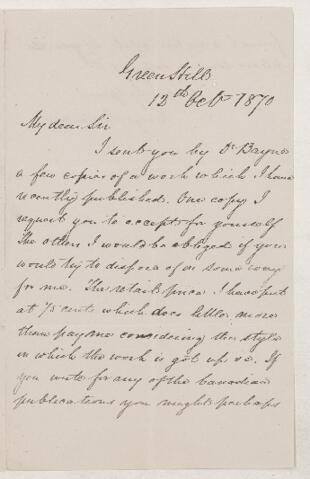 Green Hill
12th Octr 1870
My dear Sir
I sent you by Dr Bayne
a few copies of a work which I have
recently published. One copy I
request you to accept for yourself
The others I would be obliged if you
would try to dispose of in some way
for me. The retail price I have put
at 75 cents which does little more
than pay me considering the style
in which the work is got up, &c. If
you write for any of the Canadian
publications you might perhaps